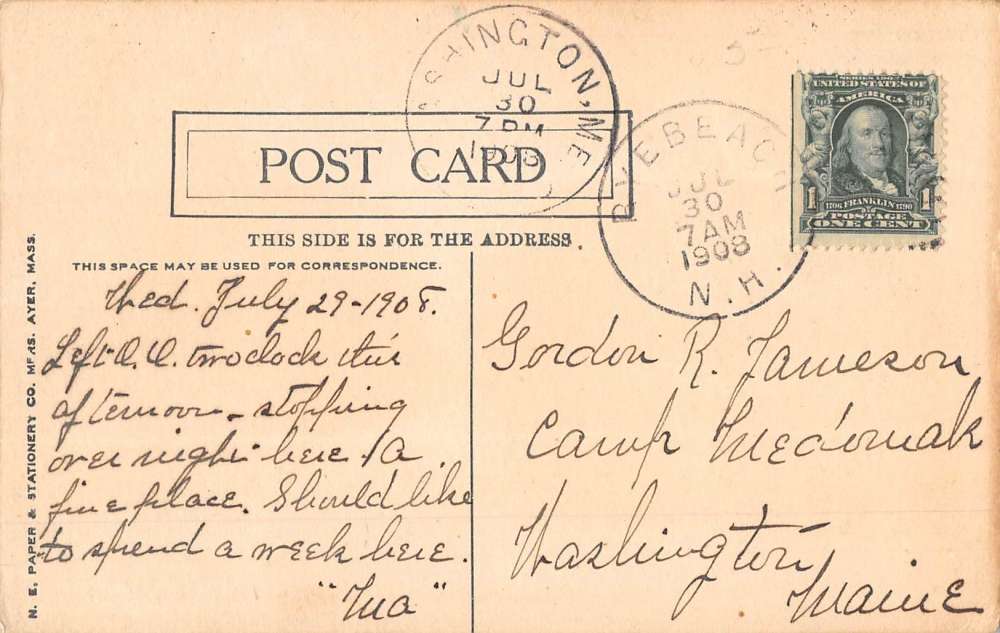 WASHINGTON, ME
JUL
30
7 PM
1908
RYE BEACH
JUL
30
7 AM
1908
N.H.
UNITED STATES OF
AMERICA
1 1
1706 FRANKLIN 1790
POSTAGE
ONE CENT
POST CARD
THIS SIDE IS FOR THE ADDRESS.
THIS SPACE MAY BE USED FOR CORRESPONDENCE.
N. E. PAPER & STATIONERY CO. MFRS. AYER, MASS.
Wed. July 29-1908.
Left O.O. two oclock this
afternoon - stopping
over night here. A
fine place. Should like
to spend a week here.
"Ma"
Gordon R. Jameson
Camp Medomak
Washington
Maine